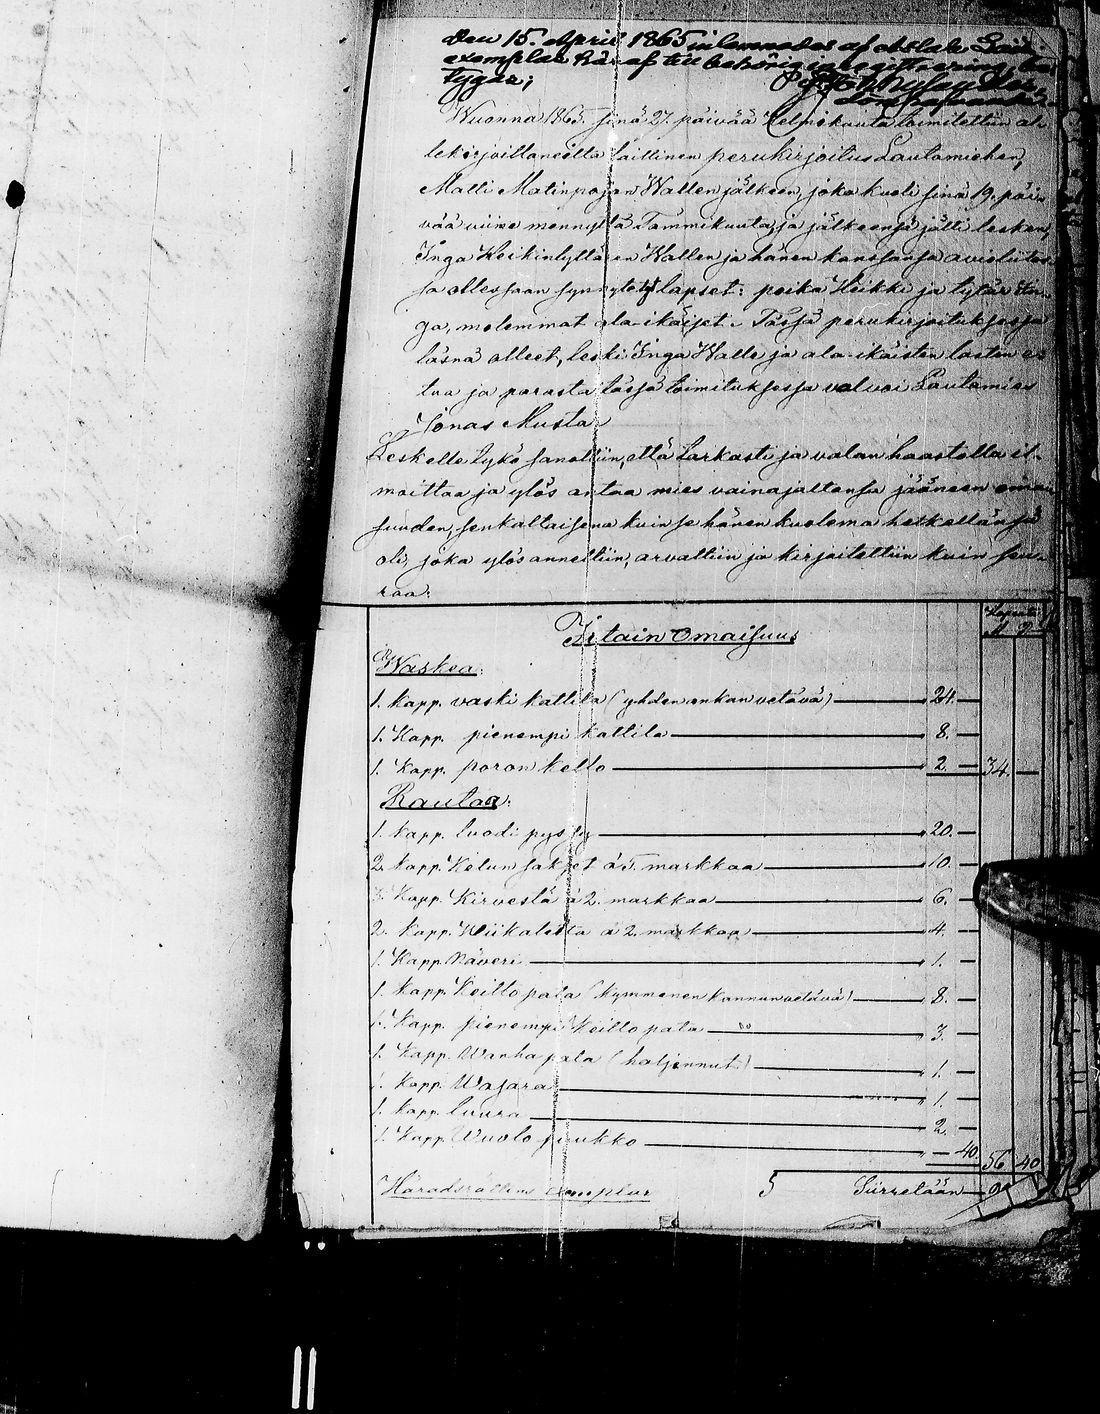 Den 15. April 1865 inlemnades af
exemplar häraf till behörig inregistrering, be-
tygar;
Wuonna 1865. sinä 27. päivää Helmikuuta toimitettiin al-
lekirjoittaneelta laillinen perukirjoitus Lautamiehen,
Matti Matinpojan Wallen jälkeen, joka kuoli sinä 19. päi-
vää viime mennyttä Tammikuuta, ja jälkeensä jätti lesken,
Inga Heikintyttären Wallen ja hänen kanssansa avioliitos-
sa ollessaan synnytetyt lapset: poika Heikki ja tytär In-
ga, molemmat ala-ikäiset. Tässä perukirjoituksessa
läsnä olleet, leski Inga Walle ja ala-ikäisten lasten e-
tua ja parasta tässä toimituksessa valvoi Lautamies
Jonas Musta.
Leskelle tykö sanottiin, että tarkasti ja valan haastolla il-
moittaa ja ylös antaa mies vainajaltansa jääneen omai-
suuden, senkaltaisena kuin se hänen kuolema hetkellänsä
oli, joka ylös annettiin, arvattiin ja kirjoitettiin kuin seu-
raa:
M. P.
Irtain Omaisuus
Waskea:
1. Kapp. vaski kattila (yhden ankan vetävä) — 24. —
1. Kapp. pienempi kattila — 8. —
1. Kapp. poron kello — 2. — 34. —
Rautaa:
1. Kapp. luodi pyssy — 20. —
2. Kapp. Ketun sakset á 5. markkaa — 10. —
3. Kapp. Kirvestä á 2. markkaa — 6. —
2. Kapp. Wiikatetta á 2. markkaa — 4. —
1. Kapp. Näveri — 1. —
1. Kapp. Keitto pata (kymmenen kannun vetävä) — 8. —
1. Kapp. pienempi Keitto pata — 3. —
1. Kapp. Wanha pata (haljennut) — 1. —
1. Kapp. Wasara — 1. —
1. Kapp. tuura — 2. —
1. Kapp. Wuolo puukko — " — 40. 56 40
Häradsrättens exemplar 5 Siirretään — 90